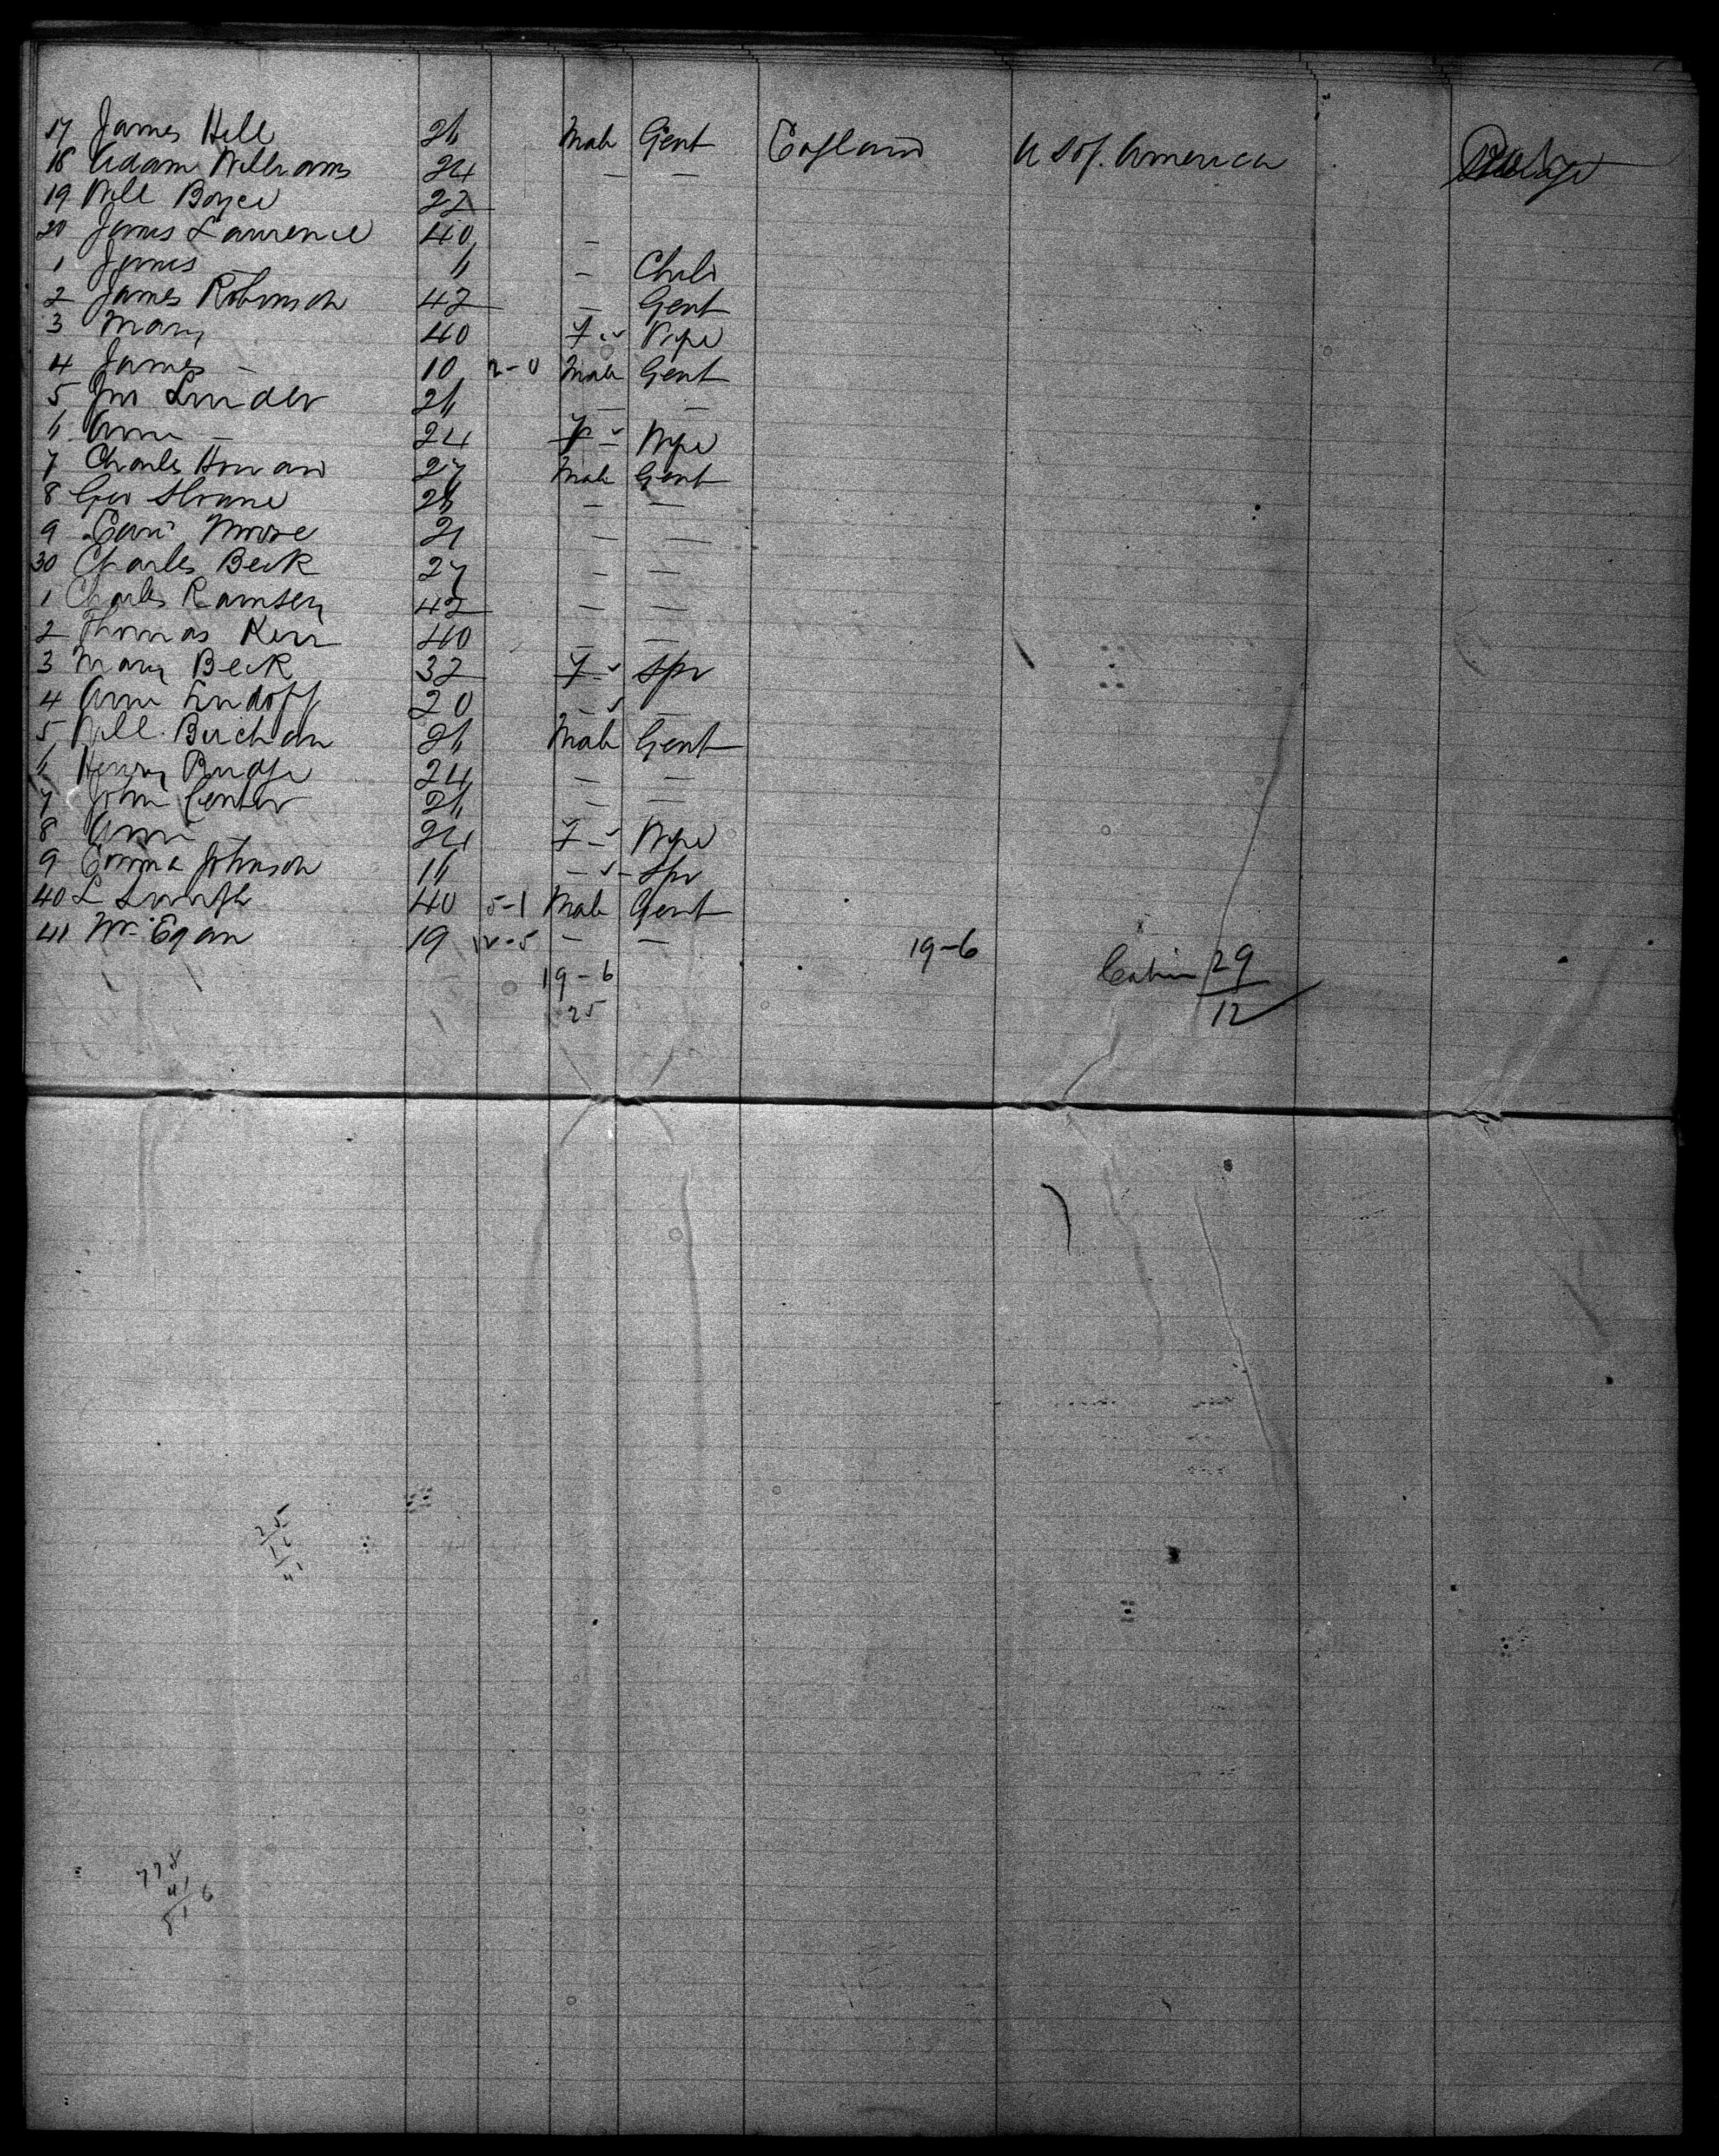 17 James Hill 26 Male Gent England U S of. America
18 Adam Williams 24 — —
19 Will Boyce 22
20 James Lawrence 40 —
1 James — 6 — Child
2 James Robinson 42 — Gent
3 Mary 40 F - Wife
4 James — 10 2-0 Male Gent
5 Jno 26 — —
6 Ann — 24 F - Wife
7 Charles Howard 27 Male Gent
8 Geo Sloane 26 — —
9 Moore 21 — —
30 Charles Beck 27 — —
1 Charles Ramsey 42 — —
2 Thomas Kerr 40 — —
3 Mary Beck 32 F - Spr
4 Ann 20 - —
5 Will. Buchan 26 Male Gent
6 Henry Budge 24 — —
7 John Center 26 — —
8 Ann — 24 F - Wife
9 Emma Johnson 16 - Spr
40 L 40 5-1 Male Gent
41 Mr Egan 19 12-5 — —
19-6 19-6 Cabin 29
25 12
25
16
41
778
41
81 6